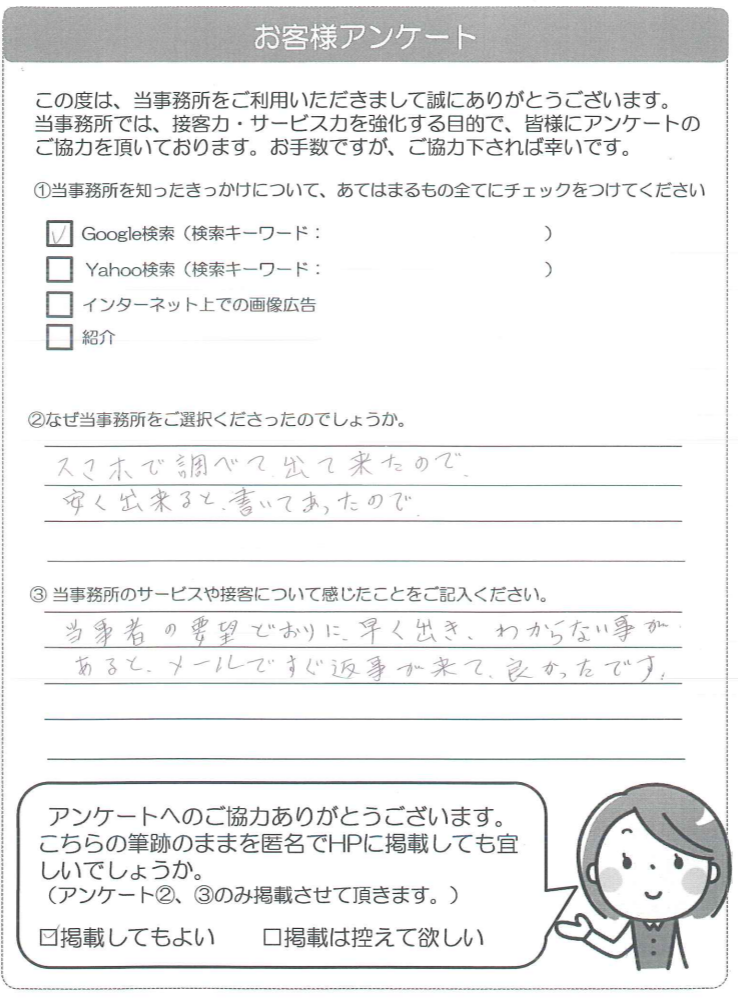 お客様アンケート
この度は、当事務所をご利用いただきまして誠にありがとうございます。
当事務所では、接客力・サービス力を強化する目的で、皆様にアンケートの
ご協力を頂いております。お手数ですが、ご協力下されば幸いです。
①当事務所を知ったきっかけについて、あてはまるもの全てにチェックをつけてください
☑ Google検索（検索キーワード： ）
☐ Yahoo検索（検索キーワード： ）
☐ インターネット上での画像広告
☐ 紹介
②なぜ当事務所をご選択くださったのでしょうか。
スマホで調べて、出て来たので、
安く出来ると、書いてあったので
③ 当事務所のサービスや接客について感じたことをご記入ください。
当事者の要望どおりに、早く出き、わからない事が
あると、メールですぐ返事が来て、良かったです。
アンケートへのご協力ありがとうございます。
こちらの筆跡のままを匿名でHPに掲載しても宜
しいでしょうか。
（アンケート②、③のみ掲載させて頂きます。）
☑掲載してもよい ☐掲載は控えて欲しい